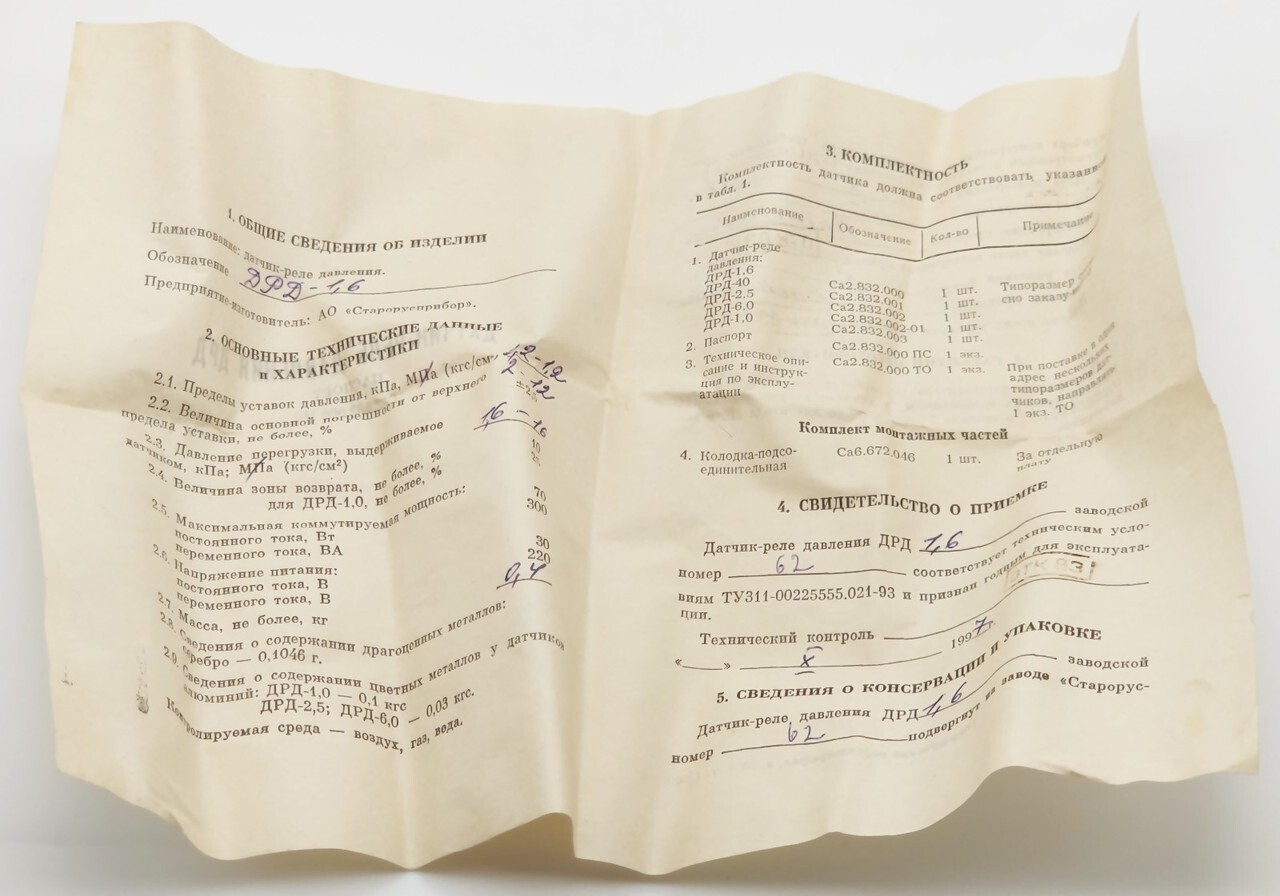 1. ОБЩИЕ СВЕДЕНИЯ ОБ ИЗДЕЛИИ
Наименование: датчик-реле давления.
Обозначение ДРД-1,6
Предприятие-изготовитель: АО «Старорусприбор».
2. ОСНОВНЫЕ ТЕХНИЧЕСКИЕ ДАННЫЕ
и ХАРАКТЕРИСТИКИ
2.1. Пределы уставок давления, кПа, МПа (кгс/см²
2.2. Величина основной погрешности от верхнего
предела уставки, не более, %
2.3. Давление перегрузки, выдерживаемое
датчиком, кПа; МПа (кгс/см²) 16-16
2.4. Величина зоны возврата, не более, % 10
для ДРД-1,0, не более, %
2.5. Максимальная коммутируемая мощность:
постоянного тока, Вт 70
переменного тока, ВА 300
2.6. Напряжение питания:
постоянного тока, В 30
переменного тока, В 220
2.7. Масса, не более, кг 0,4
2.8. Сведения о содержании драгоценных металлов:
серебро — 0,1046 г.
2.9. Сведения о содержании цветных металлов у датчиков
алюминий: ДРД-1,0 — 0,1 кгс
ДРД-2,5; ДРД-6,0 — 0,03 кгс.
Контролируемая среда — воздух, газ, вода.
3. КОМПЛЕКТНОСТЬ
Комплектность датчика должна соответствовать указанной
в табл. 1.
Наименование Обозначение Кол-во Примечание
1. Датчик-реле
давления:
ДРД-1,6 Са2.832.000 1 шт. Типоразмер
ДРД-40 Са2.832.001 1 шт. сно заказу
ДРД-2,5 Са2.832.002 1 шт.
ДРД-6,0 Са2.832.002-01 1 шт.
ДРД-1,0 Са2.832.003 1 шт.
2. Паспорт Са2.832.000 ПС 1 экз.
3. Техническое опи- Са2.832.000 ТО 1 экз. При поставке в один
сание и инструк- адрес нескольких
ция по эксплу- типоразмеров дат-
атации чиков, направлять
1 экз. ТО
Комплект монтажных частей
4. Колодка-подсо- Са6.672.046 1 шт. За отдельную
единительная плату
4. СВИДЕТЕЛЬСТВО О ПРИЕМКЕ
Датчик-реле давления ДРД 1,6 заводской
номер 62 соответствует техническим усло-
виям ТУ311-00225555.021-93 и признан годным для эксплуата-
ции.
Технический контроль
« » X 1997г.
5. СВЕДЕНИЯ О КОНСЕРВАЦИИ И УПАКОВКЕ
Датчик-реле давления ДРД 1,6 заводской
номер 62 подвергнут на заводе «Старорус-